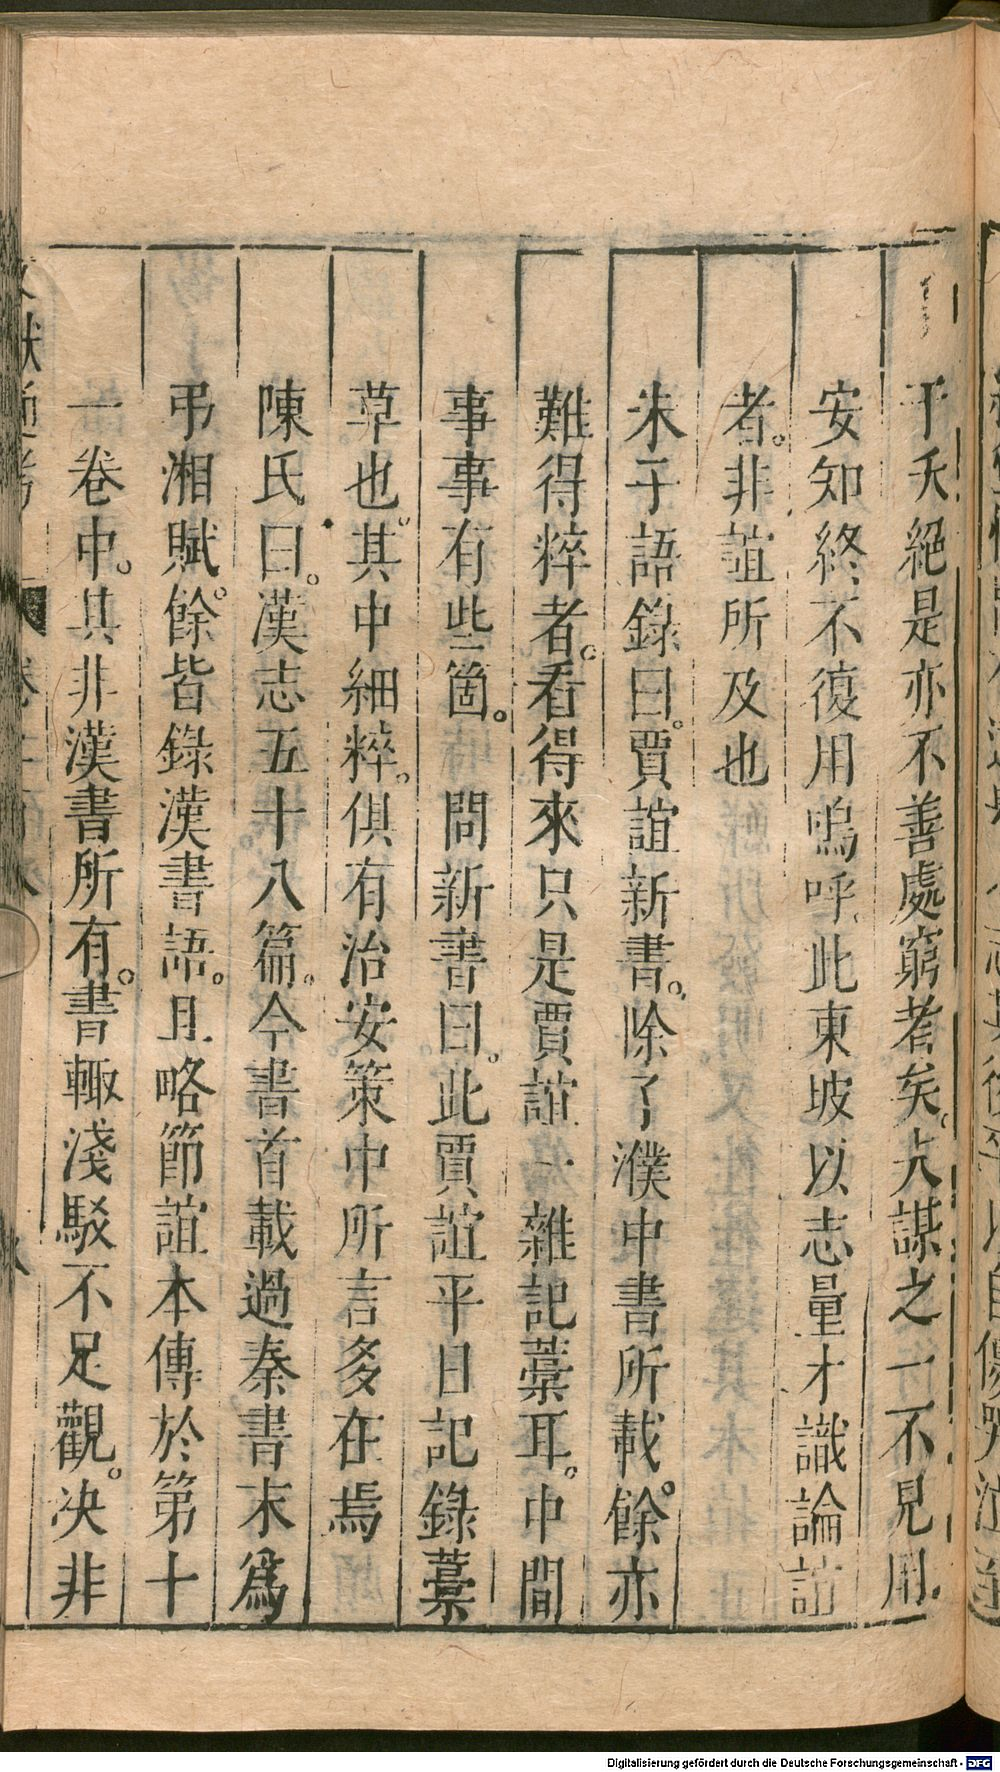 于夭絕是亦不善處窮者矣。夫謀之一不見用。
安知終不復用嗚呼此東坡以志量才識論誼
者。非誼所及也
朱子語錄曰。賈誼新書。除了漢中書所載。餘亦
難得粹者。看得來只是賈誼一雜記藁耳。中間
事事有些箇。問新書曰。此賈誼平日記錄藁
草也。其中細粹。俱有治安策中所言多在焉
陳氏曰。漢志五十八篇。今書首載過秦書末爲
弔湘賦。餘皆錄漢書語。且略節誼本傳於第十
一卷中。其非漢書所有。書輙淺駁不足觀。决非
獻通考
Digitalisierung gefördert durch die Deutsche Forschungsgemeinschaft - DFG